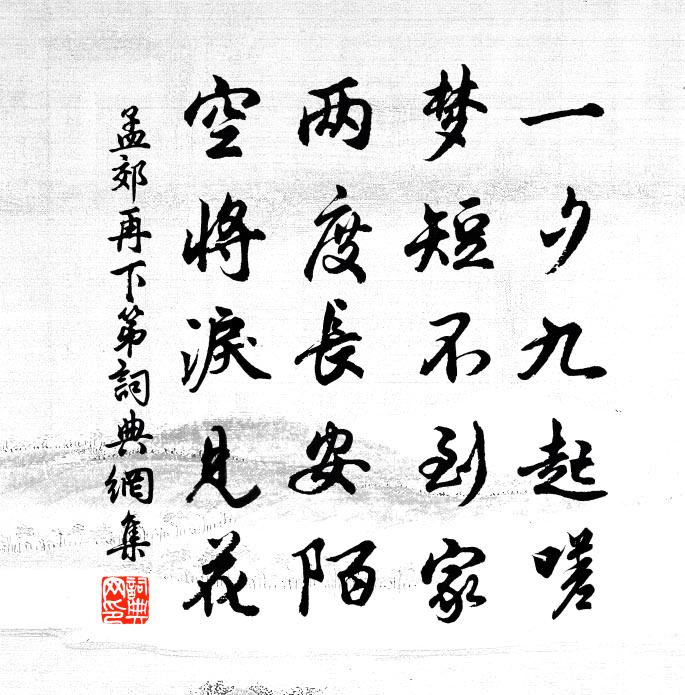 一夕九起嗟
梦短不到家
两度長安陌
空將淚見花
孟郊再下第詞典網集
詞典網印